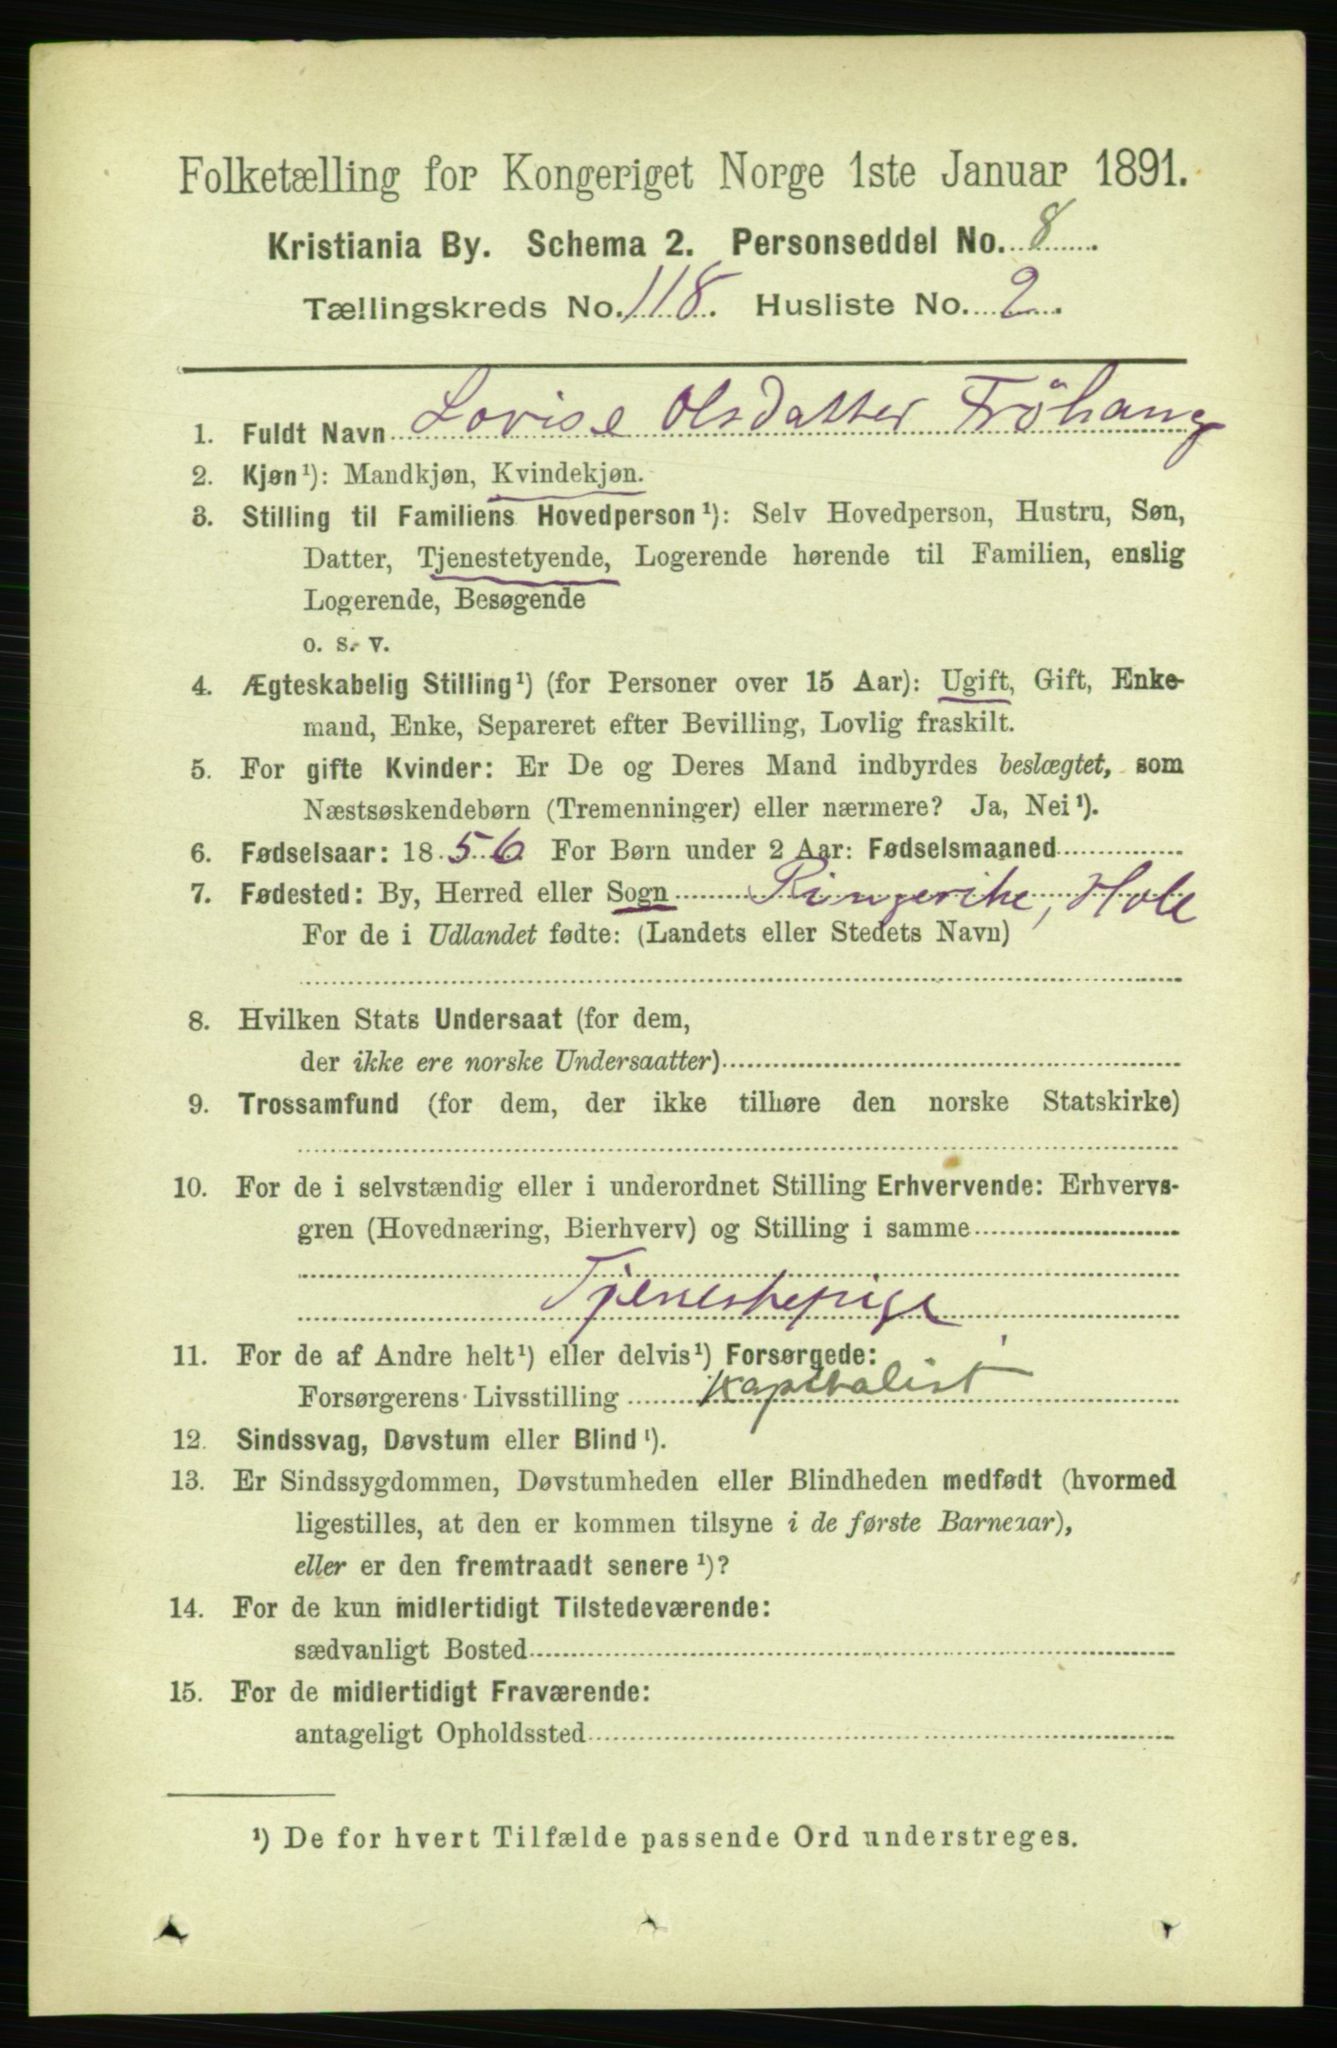 Folketælling for Kongeriget Norge 1ste Januar 1891.
Kristiania By. Schema 2. Personseddel No. 8
Tællingskreds No. 118. Husliste No. 2.
1. Fuldt Navn Lovise Olsdatter Fröhaug
2. Kjøn¹): Mandkjøn, Kvindekjøn.
3. Stilling til Familiens Hovedperson¹): Selv Hovedperson, Hustru, Søn,
Datter, Tjenestetyende, Logerende hørende til Familien, enslig
Logerende, Besøgende
o. s. v.
4. Ægteskabelig Stilling¹) (for Personer over 15 Aar): Ugift, Gift, Enke-
mand, Enke, Separeret efter Bevilling, Lovlig fraskilt.
5. For gifte Kvinder: Er De og Deres Mand indbyrdes beslægtet, som
Næstsøskendebørn (Tremenninger) eller nærmere? Ja, Nei¹).
6. Fødselsaar: 1856 For Børn under 2 Aar: Fødselsmaaned
7. Fødested: By, Herred eller Sogn Ringerike, Hole
For de i Udlandet fødte: (Landets eller Stedets Navn)
8. Hvilken Stats Undersaat (for dem,
der ikke ere norske Undersaatter)
9. Trossamfund (for dem, der ikke tilhøre den norske Statskirke)
10. For de i selvstændig eller i underordnet Stilling Erhvervende: Erhvervs-
gren (Hovednæring, Bierhverv) og Stilling i samme
Tjenestepige
11. For de af Andre helt¹) eller delvis¹) Forsørgede:
Forsørgerens Livsstilling Kapitalist
12. Sindssvag, Døvstum eller Blind¹).
13. Er Sindssygdommen, Døvstumheden eller Blindheden medfødt (hvormed
ligestilles, at den er kommen tilsyne i de første Barneaar),
eller er den fremtraadt senere¹)?
14. For de kun midlertidigt Tilstedeværende:
sædvanligt Bosted
15. For de midlertidigt Fraværende:
antageligt Opholdssted
¹) De for hvert Tilfælde passende Ord understreges.